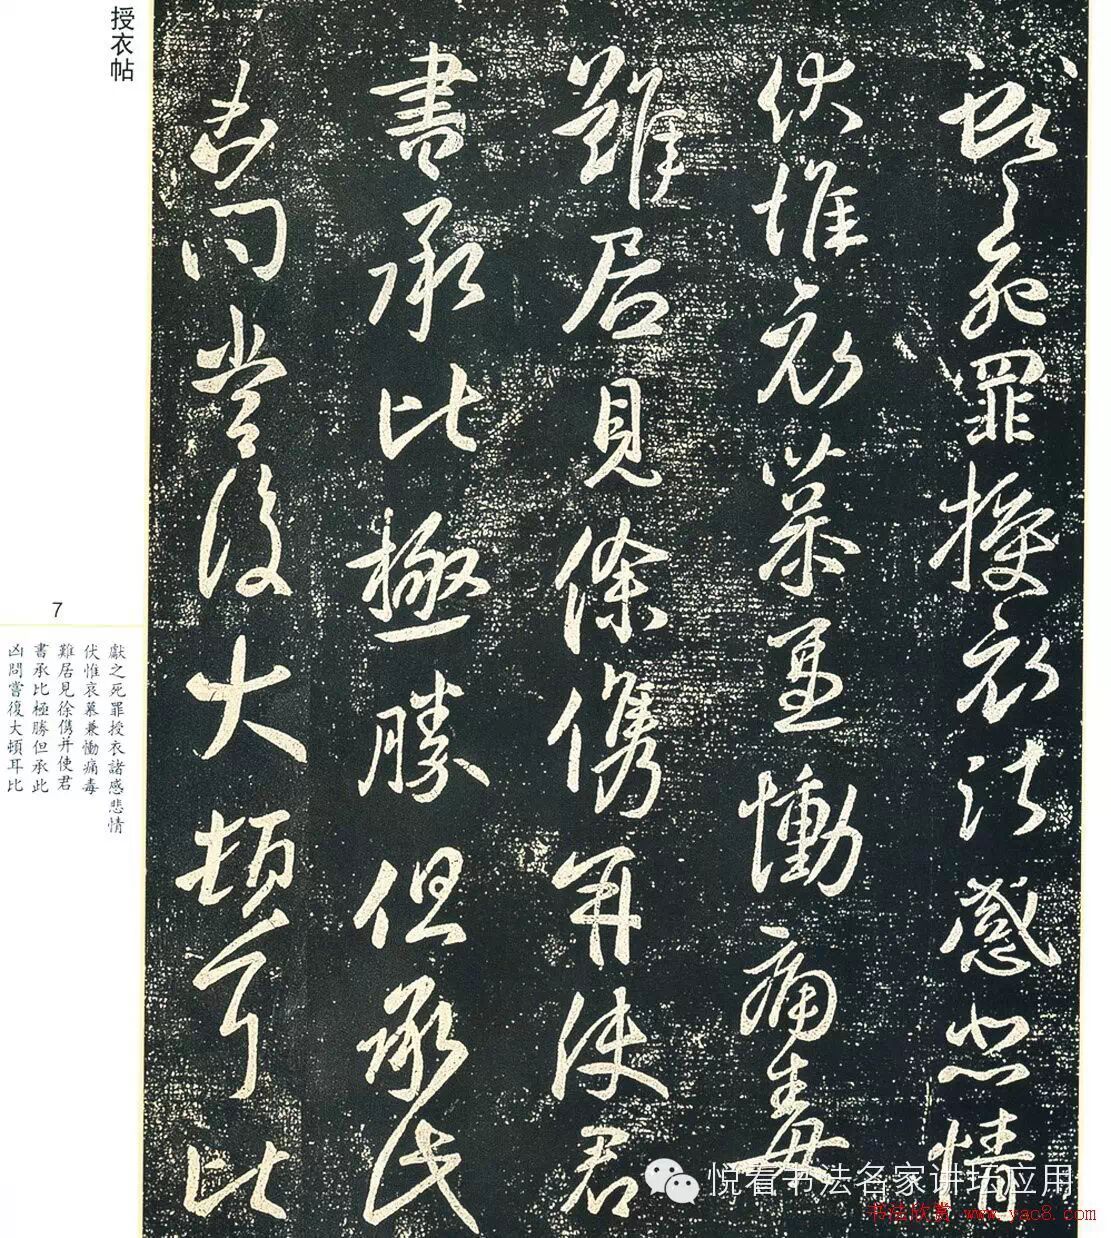 授衣帖
獻之死罪授衣諸感悲情
伏惟哀慕兼慟痛毒
難居見徐儁并使君
書承比極勝但承此
凶問嘗復大頓耳比
7
獻之死罪授衣諸感悲情
伏惟哀慕兼慟痛毒
難居見徐儁并使君
書承比極勝但承此
凶問嘗復大頓耳比
悦看书法名家讲坛应用
书法欣赏 www.yac8.com